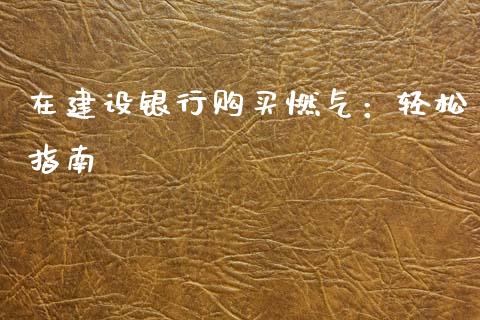 在建设银行购买燃气：轻松
指南